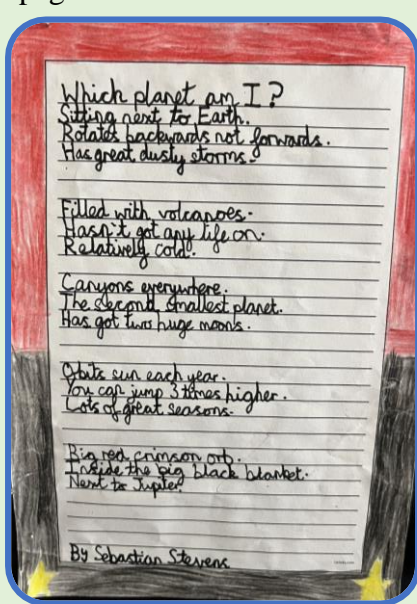 Which planet am I?
Sitting next to Earth.
Rotates backwards not forwards.
Has great dusty storms.
Filled with volcanoes.
Hasn't got any life on.
Relatively cold.
Canyons everywhere.
The second smallest planet.
Has got two huge moons.
Obits sun each year.
You can jump 3 times higher.
Lots of great seasons.
Big red crimson orb.
Inside the big black blanket.
Next to Jupiter.
By Sebastian Stevens